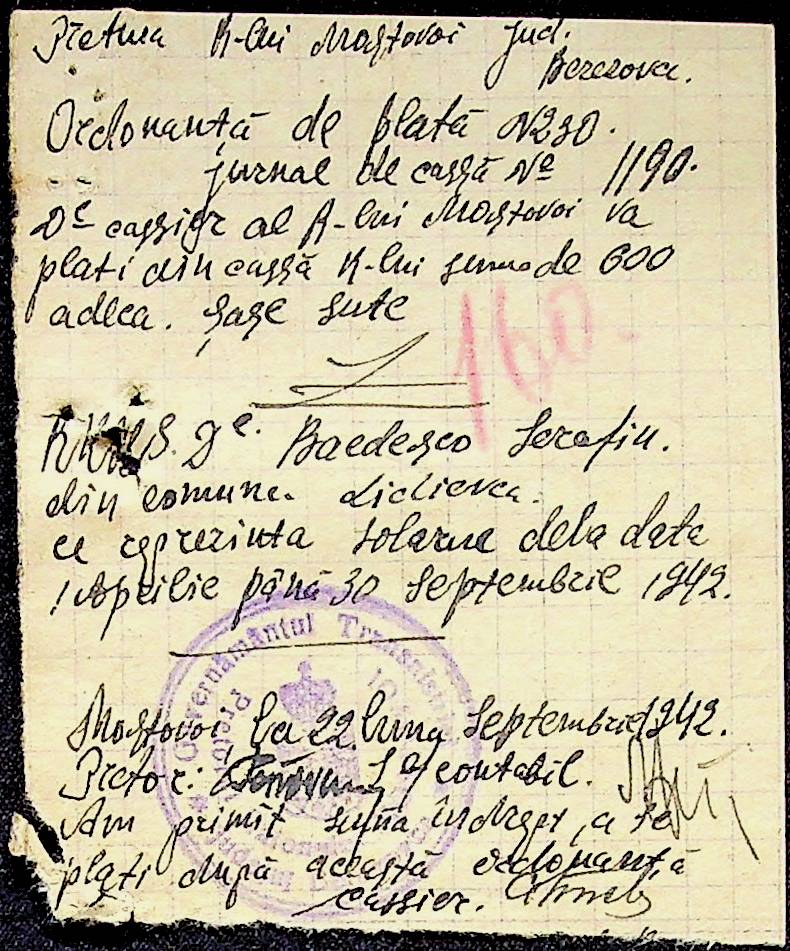 Pretura R-lui Mostovoi jud.
Berezovca.
Ordonanță de plată N230.
jurnal de cassă № 1190.
Dl cassier al R-lui Mostovoi va
plati din cassă R-lui suma de 600
adeca. șase sute
160.
Dl. Baedesco Serafin.
din comuna
ce reprezinta solarue dela data
1 Aprilie până 30 Septembrie 1942.
Guvernământul Transnistriei
Mostovoi, la 22 luna Septembrie 1942.
Pretor: contabil.
Am primit suma a se
plati după aceastà ordonanță
cassier.